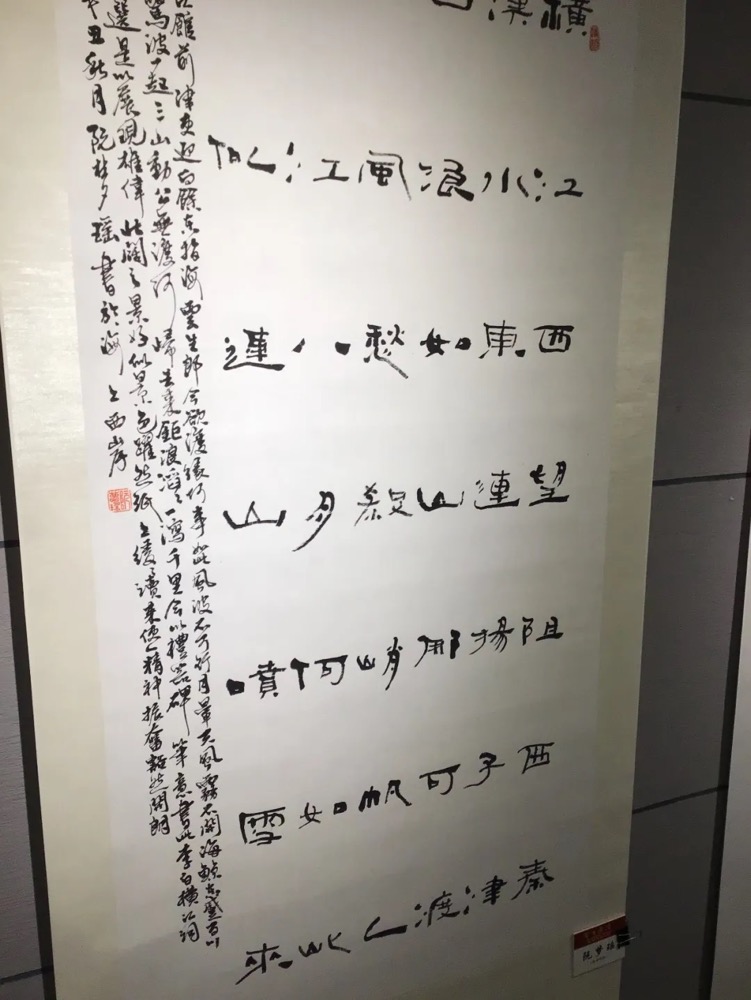 橫江西望阻西秦
漢水東連揚子津
浪如山那可渡
風愁殺峭帆人
江八月何如此
似連山噴雪來
江館前津吏迎向餘東指海雲生郎今欲渡緣何事如此風波不可行月暈天風霧不開海鯨東蹙百川
驚波一起三山動公無渡河歸去來鉅浪滔滔一瀉千里今以禮器碑筆意書此李白橫江詞
選是以展現雄偉壯闊之景好似景色躍然紙上緩緩讀來使人精神振奮豁然開朗
辛丑秋月阮梦瑶書於海上西岸
阮梦瑶